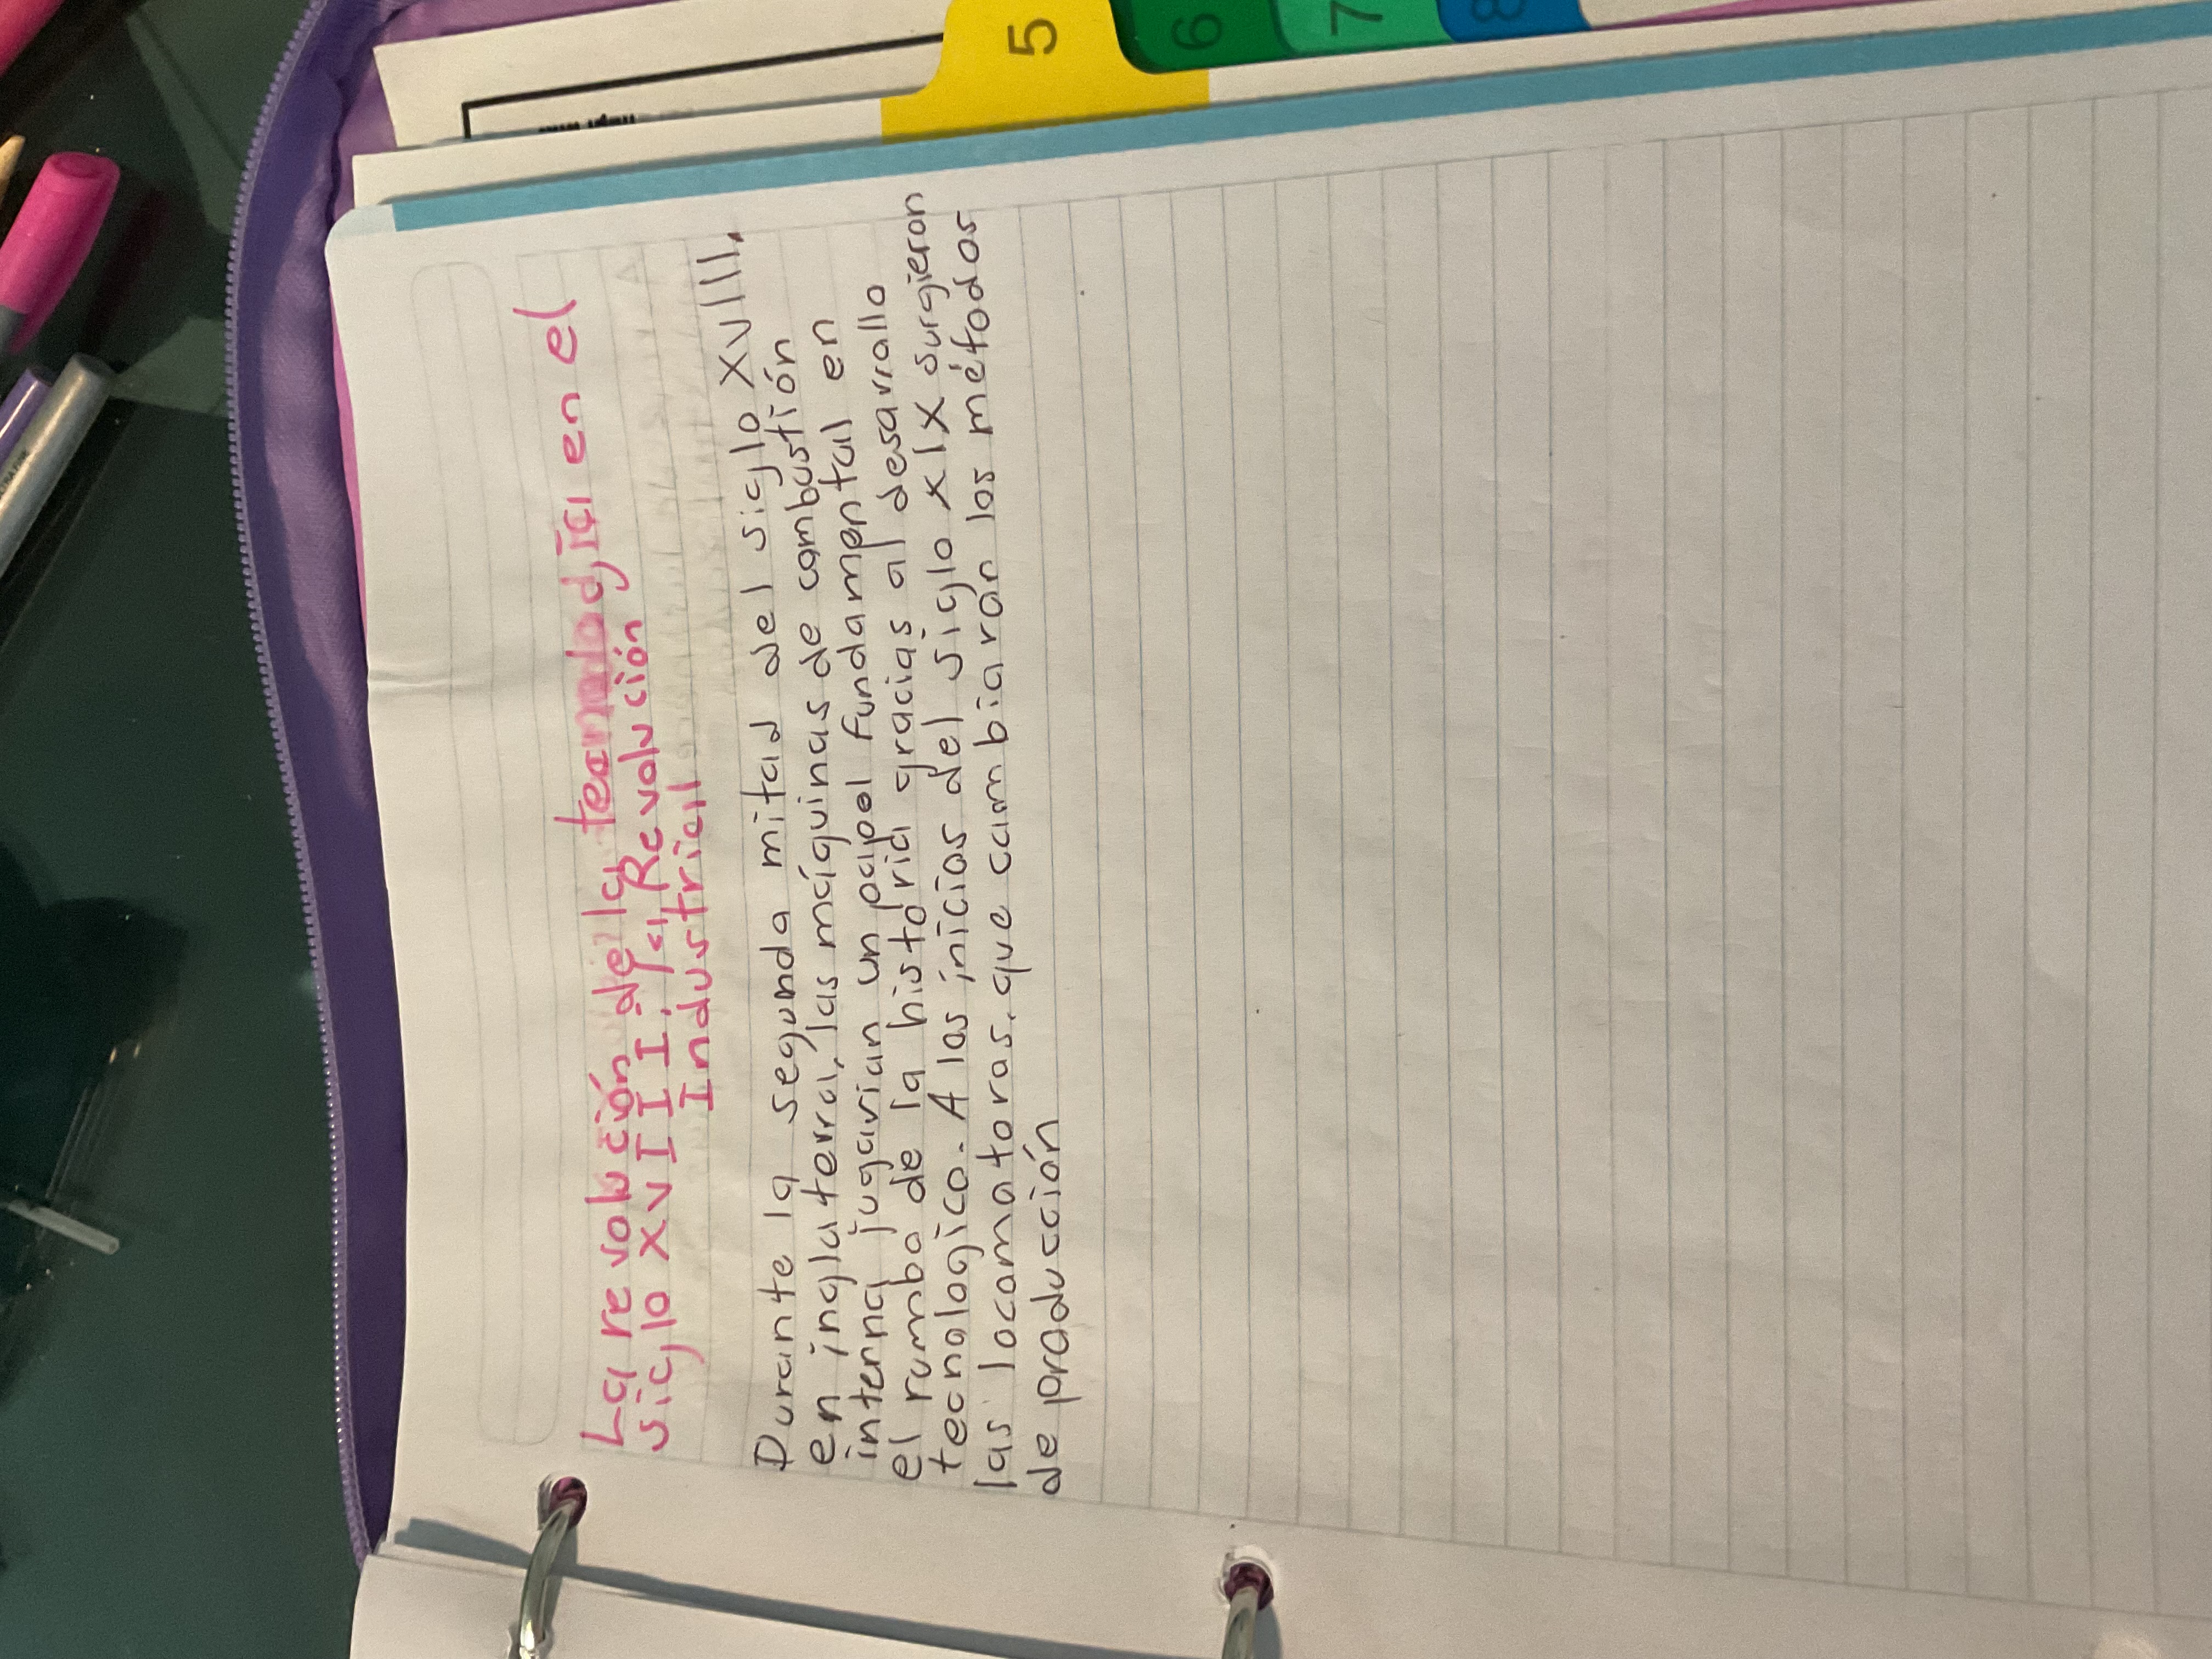 La revolución de la tecnología en el
siglo XVIII, la Revolución
Industrial
Durante la segunda mitad del siglo XVIII,
en inglaterra, las máquinas de combustión
interna jugarian un papel fundamental en
el rumbo de la historia gracias al desarrollo
tecnologico. A los inicios del siglo XIX surgieron
las locomotoras, que cambiaran los métodos
de producción
5
6
7
8